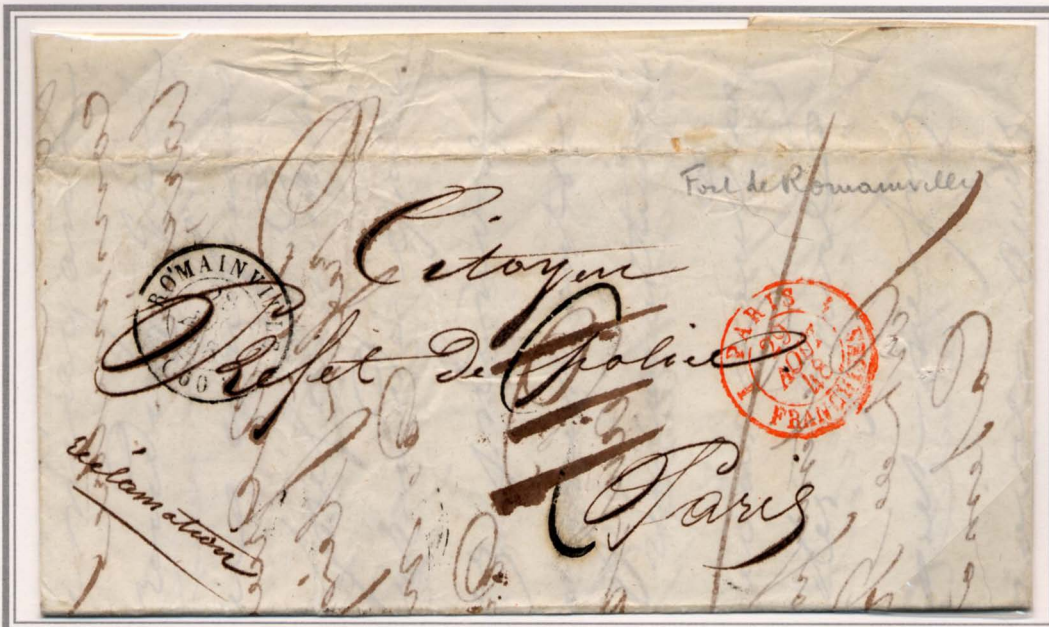 Fort de Romainville
Citoyen
ROMAINVILLE
(60)
Prefet de Police
PARIS
29
AOUT
48
FRANCHISES
réclamation
Paris